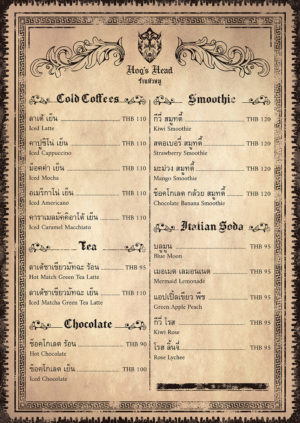 Hog's Head
ร้านหัวหมู
Cold Coffees
ลาเต้ เย็น THB 110
Iced Latte
คาปูชิโน่ เย็น THB 110
Iced Cappuccino
ม็อคค่า เย็น THB 110
Iced Mocha
อเมริกาโน่ เย็น THB 110
Iced Americano
คาราเมลมัคคิอาโต้ เย็น THB 110
Iced Caramel Macchiato
Tea
ลาเต้ชาเขียวมัทฉะ ร้อน THB 95
Hot Matcha Green Tea Latte
ลาเต้ชาเขียวมัทฉะ เย็น THB 110
Iced Matcha Green Tea Latte
Chocolate
ช็อคโกเลต ร้อน THB 90
Hot Chocolate
ช็อคโกเลต เย็น THB 100
Iced Chocolate
Smoothie
กีวี่ สมูทตี้ THB 120
Kiwi Smoothie
สตอเบอรี่ สมูทตี้ THB 120
Strawberry Smoothie
มะม่วง สมูทตี้ THB 120
Mango Smoothie
ช็อคโกเลต กล้วย สมูทตี้ THB 120
Chocolate Banana Smoothie
Italian Soda
บลูมูน THB 95
Blue Moon
เมอเมด เลมอนเนด THB 95
Mermaid Lemonade
แอปเปิ้ลเขียว พีช THB 95
Green Apple Peach
กีวี่ โรส THB 95
Kiwi Rose
โรส ลิ้นจี่ THB 95
Rose Lychee